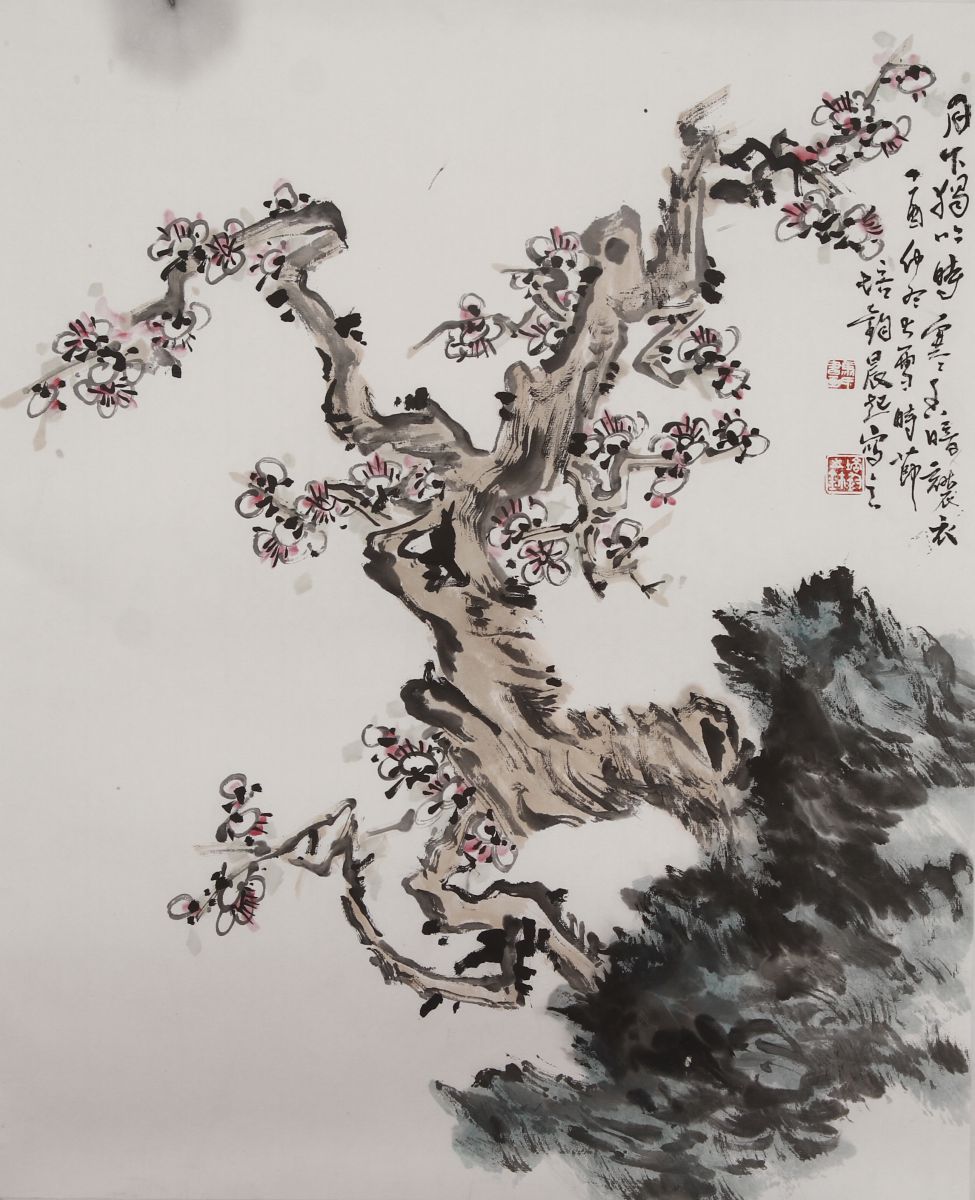 月下獨吟時寒香暗襲衣
丁酉仲冬大雪時節
培韵晨起寫之